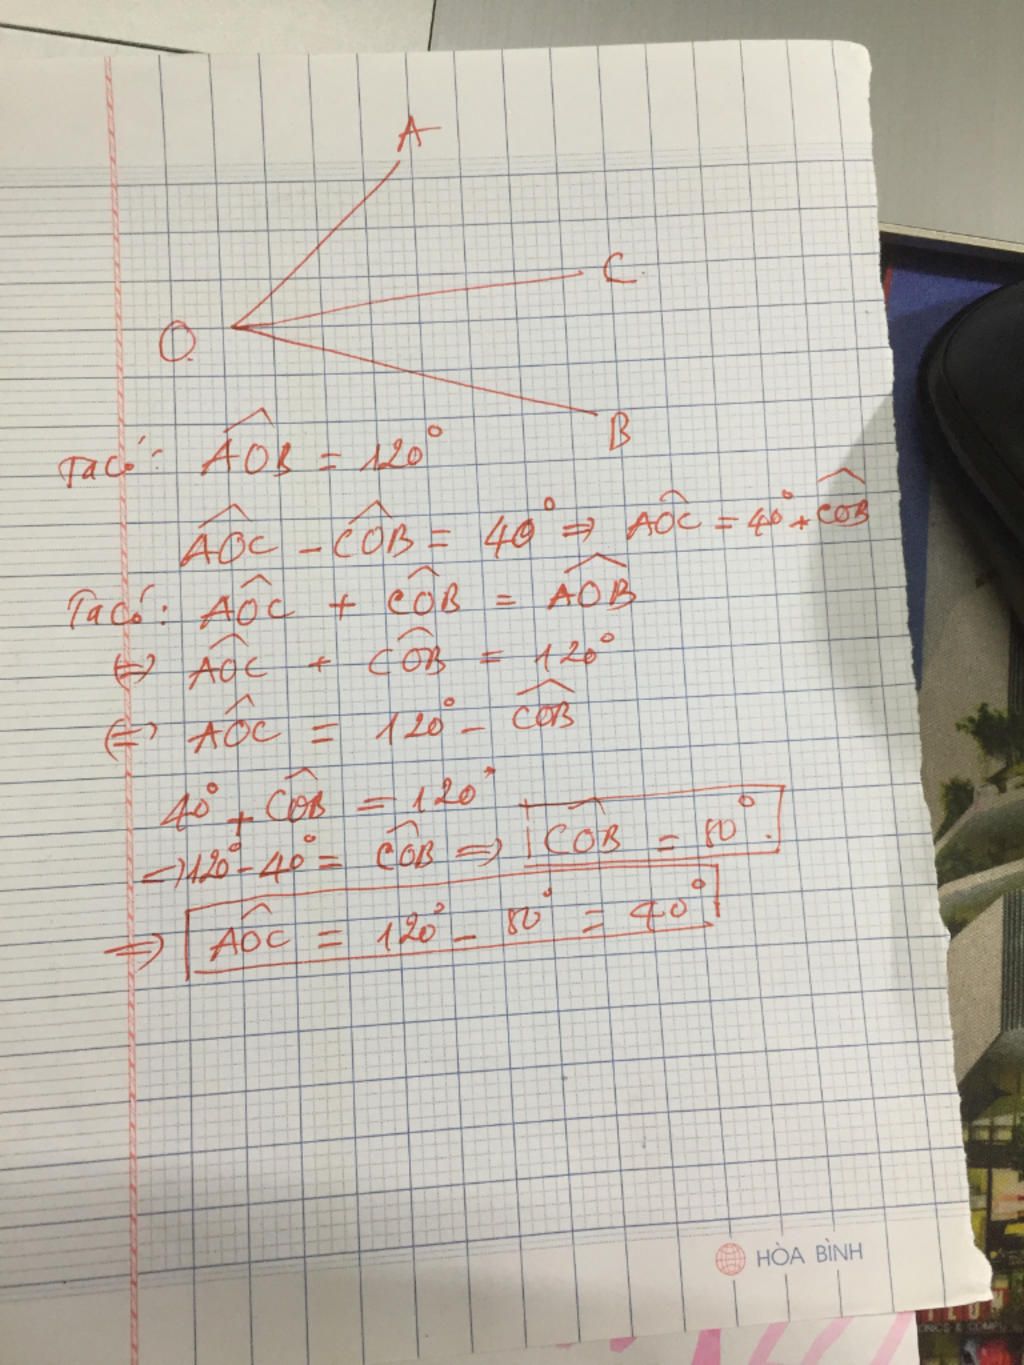 A
C
O
B
Ta có: AOB = 120°
AOC - COB = 40° => AOC = 40° + COB
Ta có: AOC + COB = AOB
<=> AOC + COB = 120°
<=> AOC = 120° - COB
40° + COB = 120°
=> 120° - 40° = COB => COB = 80°.
=> AOC = 120° - 80° = 40°
HÒA BÌNH